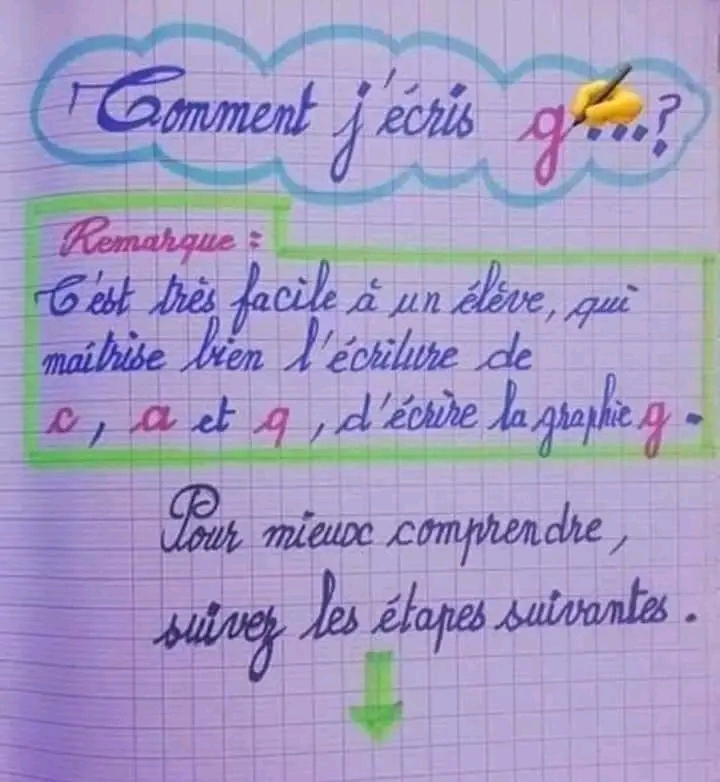 Comment j'écris g...?
Remarque :
C'est très facile à un élève, qui
maîtrise bien l'écriture de
c, a et q, d'écrire la graphie g.
Pour mieux comprendre,
suivez les étapes suivantes.